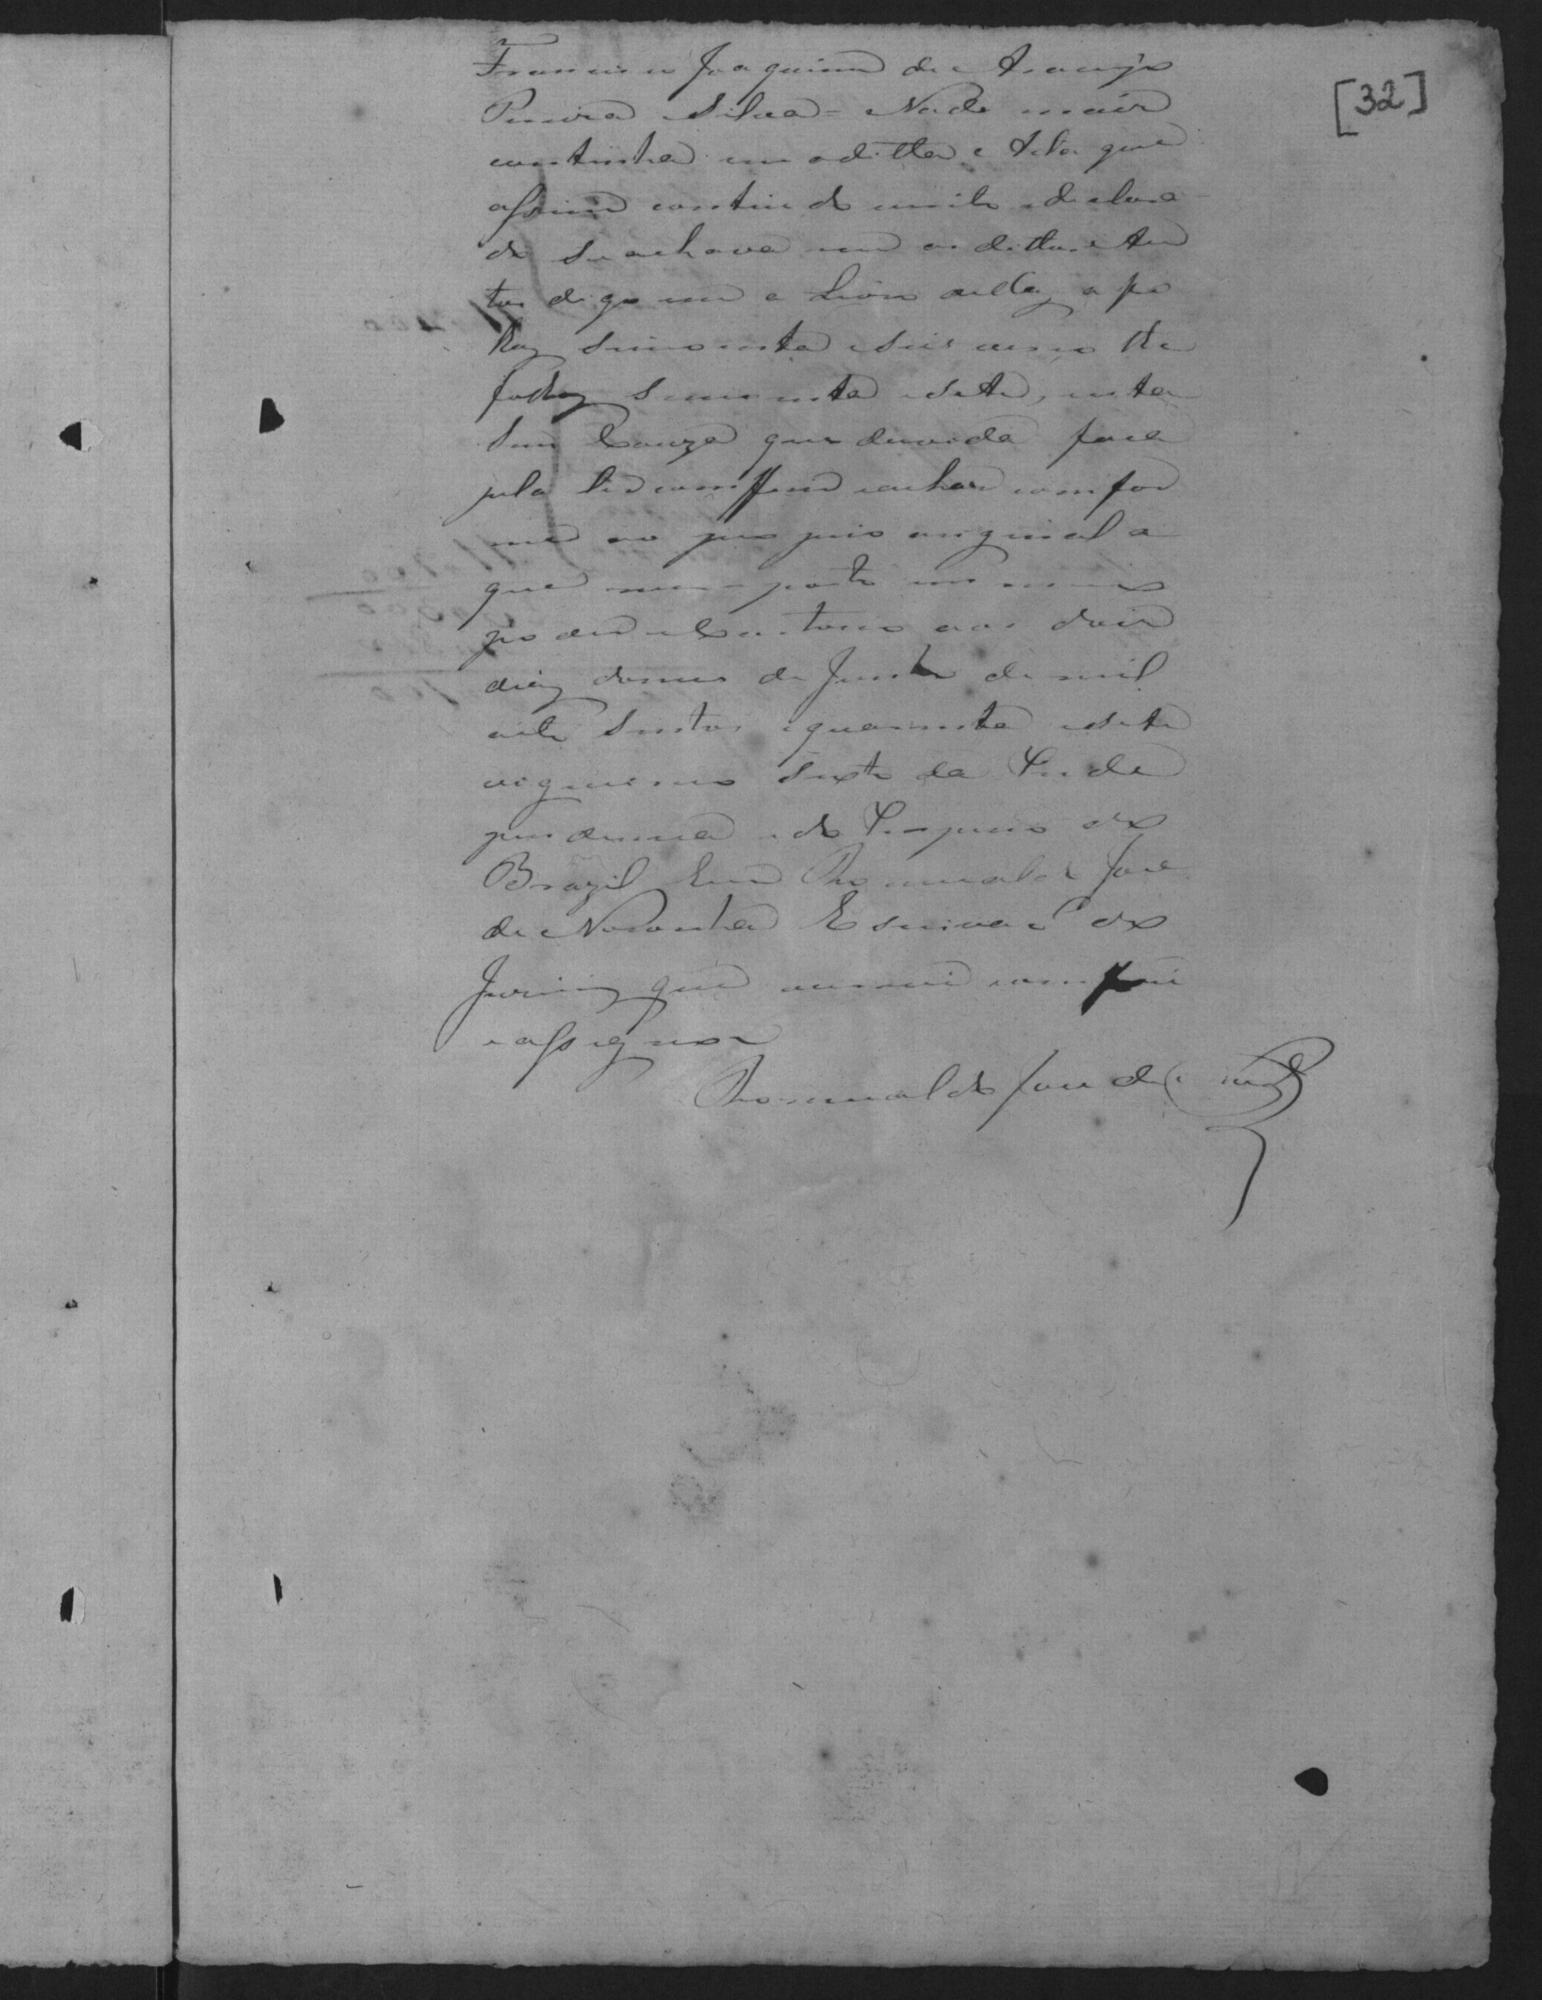 [32]
Francisco Joaquim de Araujo
Pereira Silva = Nada mais
continha em a ditta Acta que
assim contiudo escrito e declara-
do se achava em os dittos Au
tos digo em o Livro della, a fo
lhas sincoenta e seis verso the
folhas sincoenta e sete, e esta
sem Couza que duvida faça
pela ler comferi e achar comfor
me ao proprio original a
que me reporto em meu
poder e Cartorio aos dois
dias do mes de Junho de mil
oito Sentos e quarenta e sete
vigessimo Sexto da Inde
pendencia e do Imperio do
Brazil Eu Romualdo Jose
de Noronha Escrivaõ do
Jury que escrevi comferi
e assignei
Romualdo Jose de